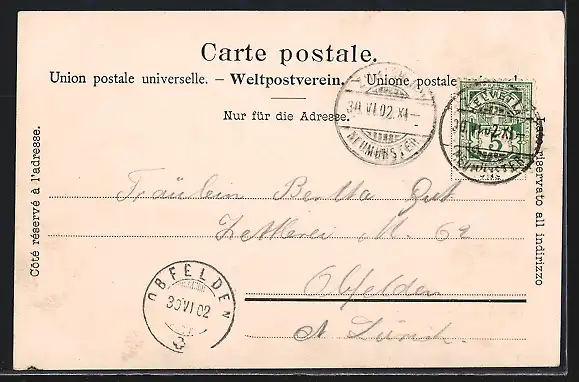 Carte postale.
Union postale universelle. – Weltpostverein. Unione postale
Nur für die Adresse.
Côté réservé à l'adresse.
Lato riservato all indirizzo
30.VI.02.XI–
NEUMÜNSTER
5
30.VI.02.XI–
Fräulein Bertha Gut
M. 62
Obfelden
Kt. Zürich.
OBFELDEN
30 VI 02